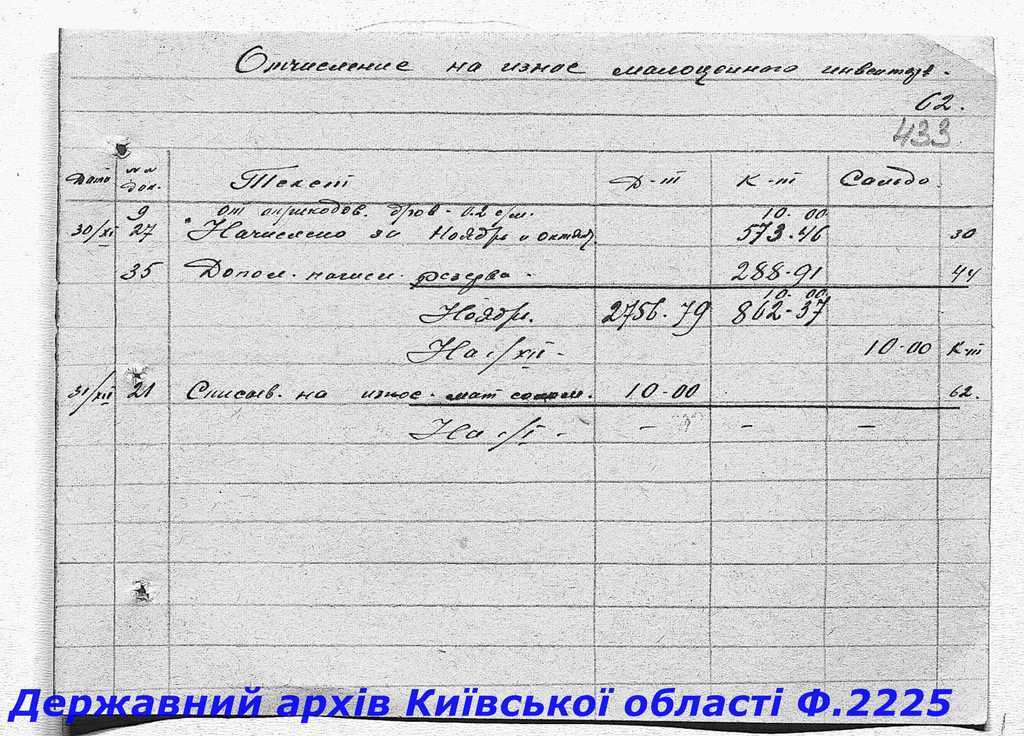 Отчисление на износ малоценного инвентар.
62.
433
Дата №№ Док. Текст Д-т К-т Сальдо.
9 от оприходов. дров - 0.2 с/м. 10.00
30/XI 27 Начислено за Ноябрь и октябр. 573-46 30
35 Допол. начисл. резерва - 288-91 44
10.00
Ноябрь. 2756.79 862-37
На 1/XII - 10-00 К-т
31/XII 21 Списыв. на износ. мат 10-00 62.
На 1/I - - - -
Державний архів Київської області Ф.2225